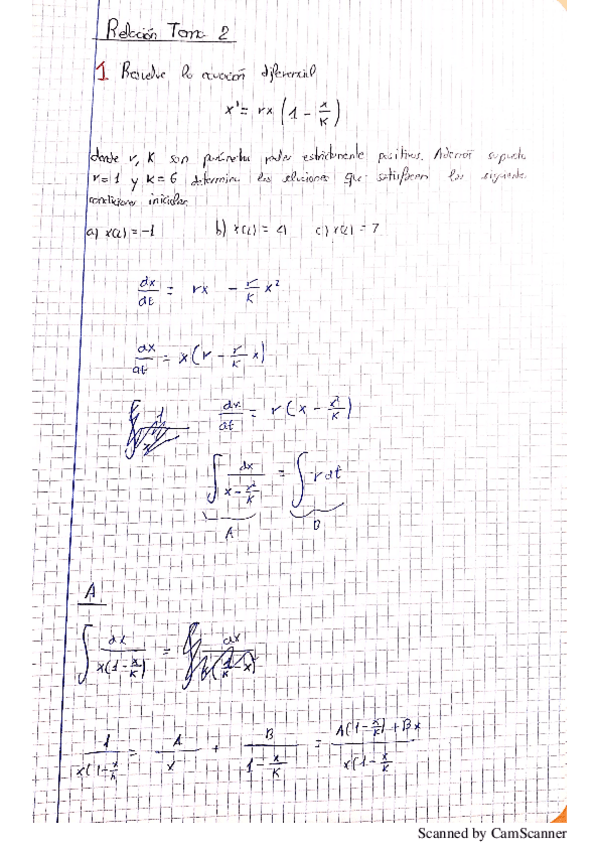 Relación Tema 2
1. Resuelve la ecuación diferencial
x' = rx (1 - x/K)
donde r, K son parámetros reales estrictamente positivos. Además supuesto
r=1 y K=6 determina las soluciones que satisfacen las siguientes
condiciones iniciales
a) x(2) = -1 b) x(2) = 4 c) x(2) = 7
dx/dt = rx - r/K x²
dx/dt = x(r - r/K x)
dx/dt = r(x - x²/K)
∫ dx/(x - x²/K) = ∫ r dt
A B
A
∫ dx/(x(1 - x/K)) =
1/(x(1 - x/K = A/x + B/(1 - x/K) = (A(1 - x/K) + Bx)/(x(1 - x/K
Scanned by CamScanner